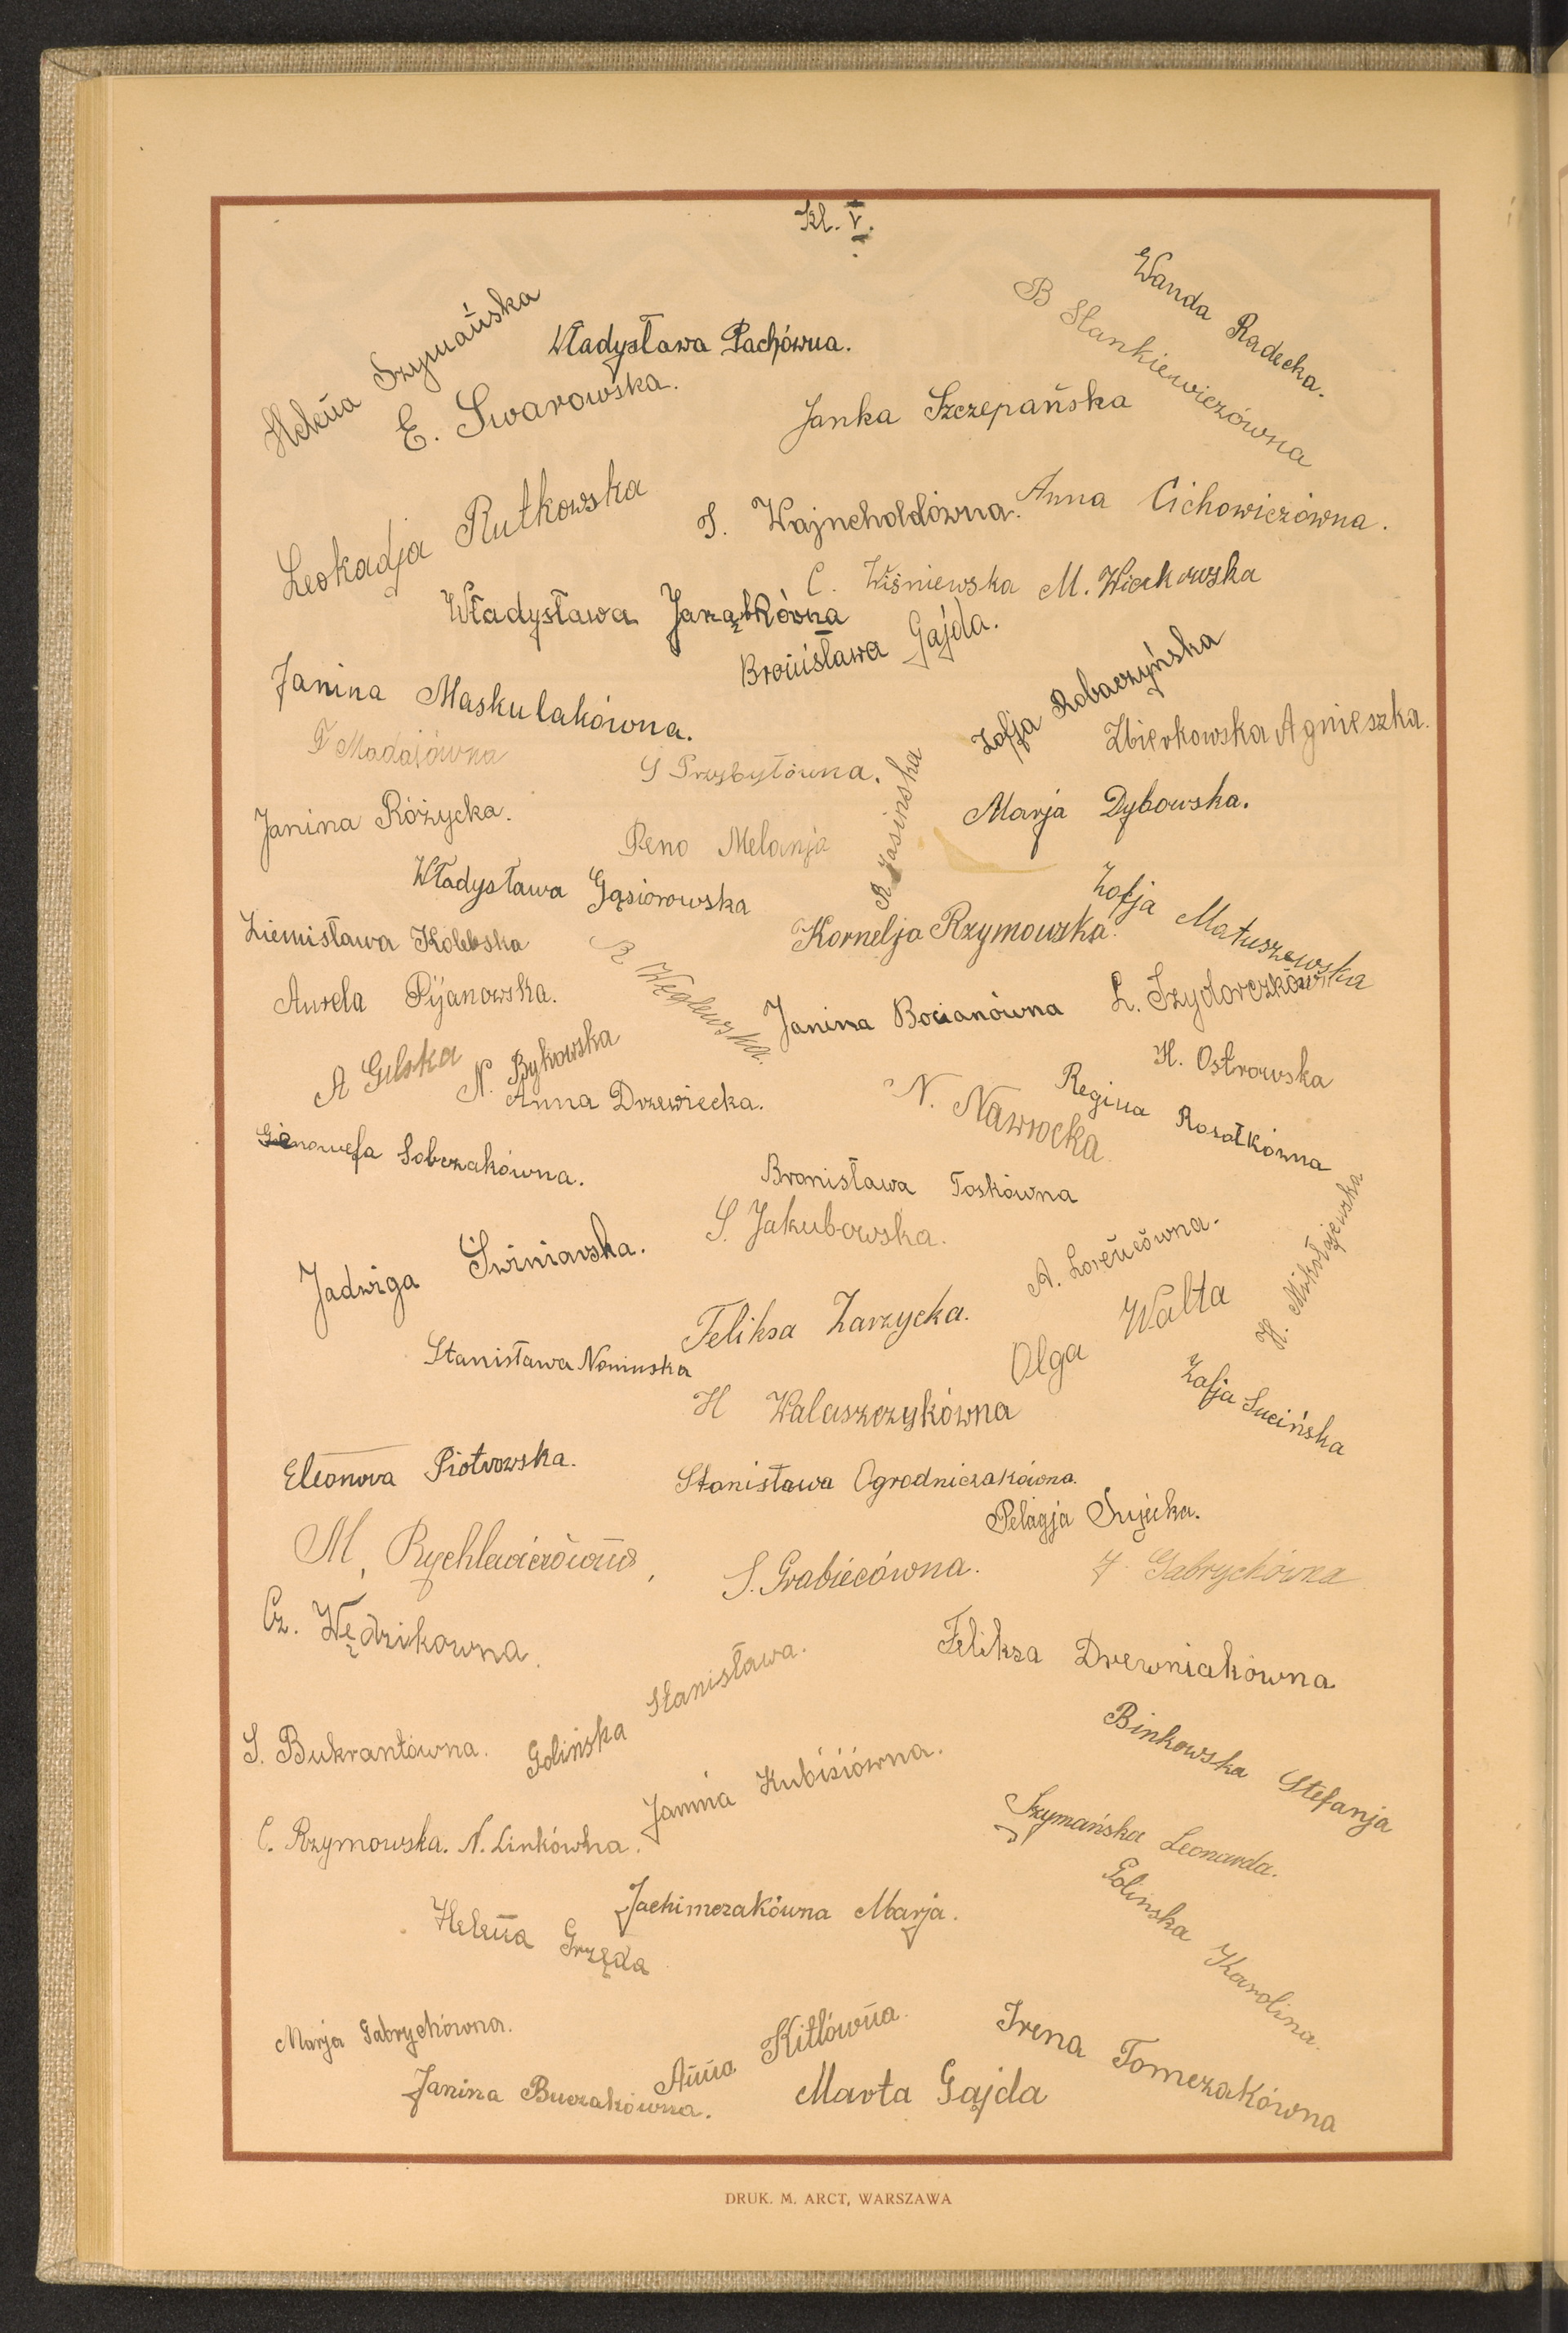 Kl. V.
Wanda Radecka.
B Stankiewiczówna
Helena Szymańska
Władysława Pachówna.
E. Swarowska.
Janka Szczepańska
Leokadja Rutkowska
S. Wajncholdówna.
Anna Cichowiczówna.
C. Wiśniewska
M. Wiechowska
Władysława Jarząbkówna
Bronisława Gajda.
Janina Maskulakówna.
Zofja Robaczyńska
Zbierkowska Agnieszka.
F Madajówna
S Przybyłówna.
R Jasinska
Janina Różycka.
Peno Melanja
Marja Dybowska.
Władysława Gąsiorowska
Zofja Matuszewska
Ziemisława Kolebska
R Węglewska.
Kornelja Rzymowska.
Aurela Pijanowska.
Janina Bocianówna
L. Szydorczkówna
A Gilska
N. Bykowska
H. Ostrowska
Anna Drzewiecka.
N. Nawrocka
Regina Rosołkówna
Genowefa Sobczakówna.
Bronisława Toskówna
S. Jakubowska.
H. Mikołajewska
Jadwiga Świniarska.
A. Lorencówna.
Feliksa Zarzycka.
Olga Walta
Stanisława Nominska
Zofja Sucińska
H Walaszczykówna
Eleonora Piotrowska.
Stanisława Ogrodniczakówna.
Pelagja Sujecka.
M. Rychlewiczówna,
S. Grabiecówna.
J. Gabrychówna
Cz. Wędzikowna.
Feliksa Drewniakówna
Golińska Stanisława.
S. Bukrantówna.
Binkowska Stefanja
Janina Kubisiówna.
C. Rzymowska.
N. Linkówna.
Szymańska Leonarda.
Golinska Karolina.
Jachimczakówna Marja.
Helena Grzęda
Marja Gabrychówna.
Anna Kitlówna.
Irena Tomczakówna
Janina Buczakówna.
Marta Gajda
DRUK. M. ARCT, WARSZAWA